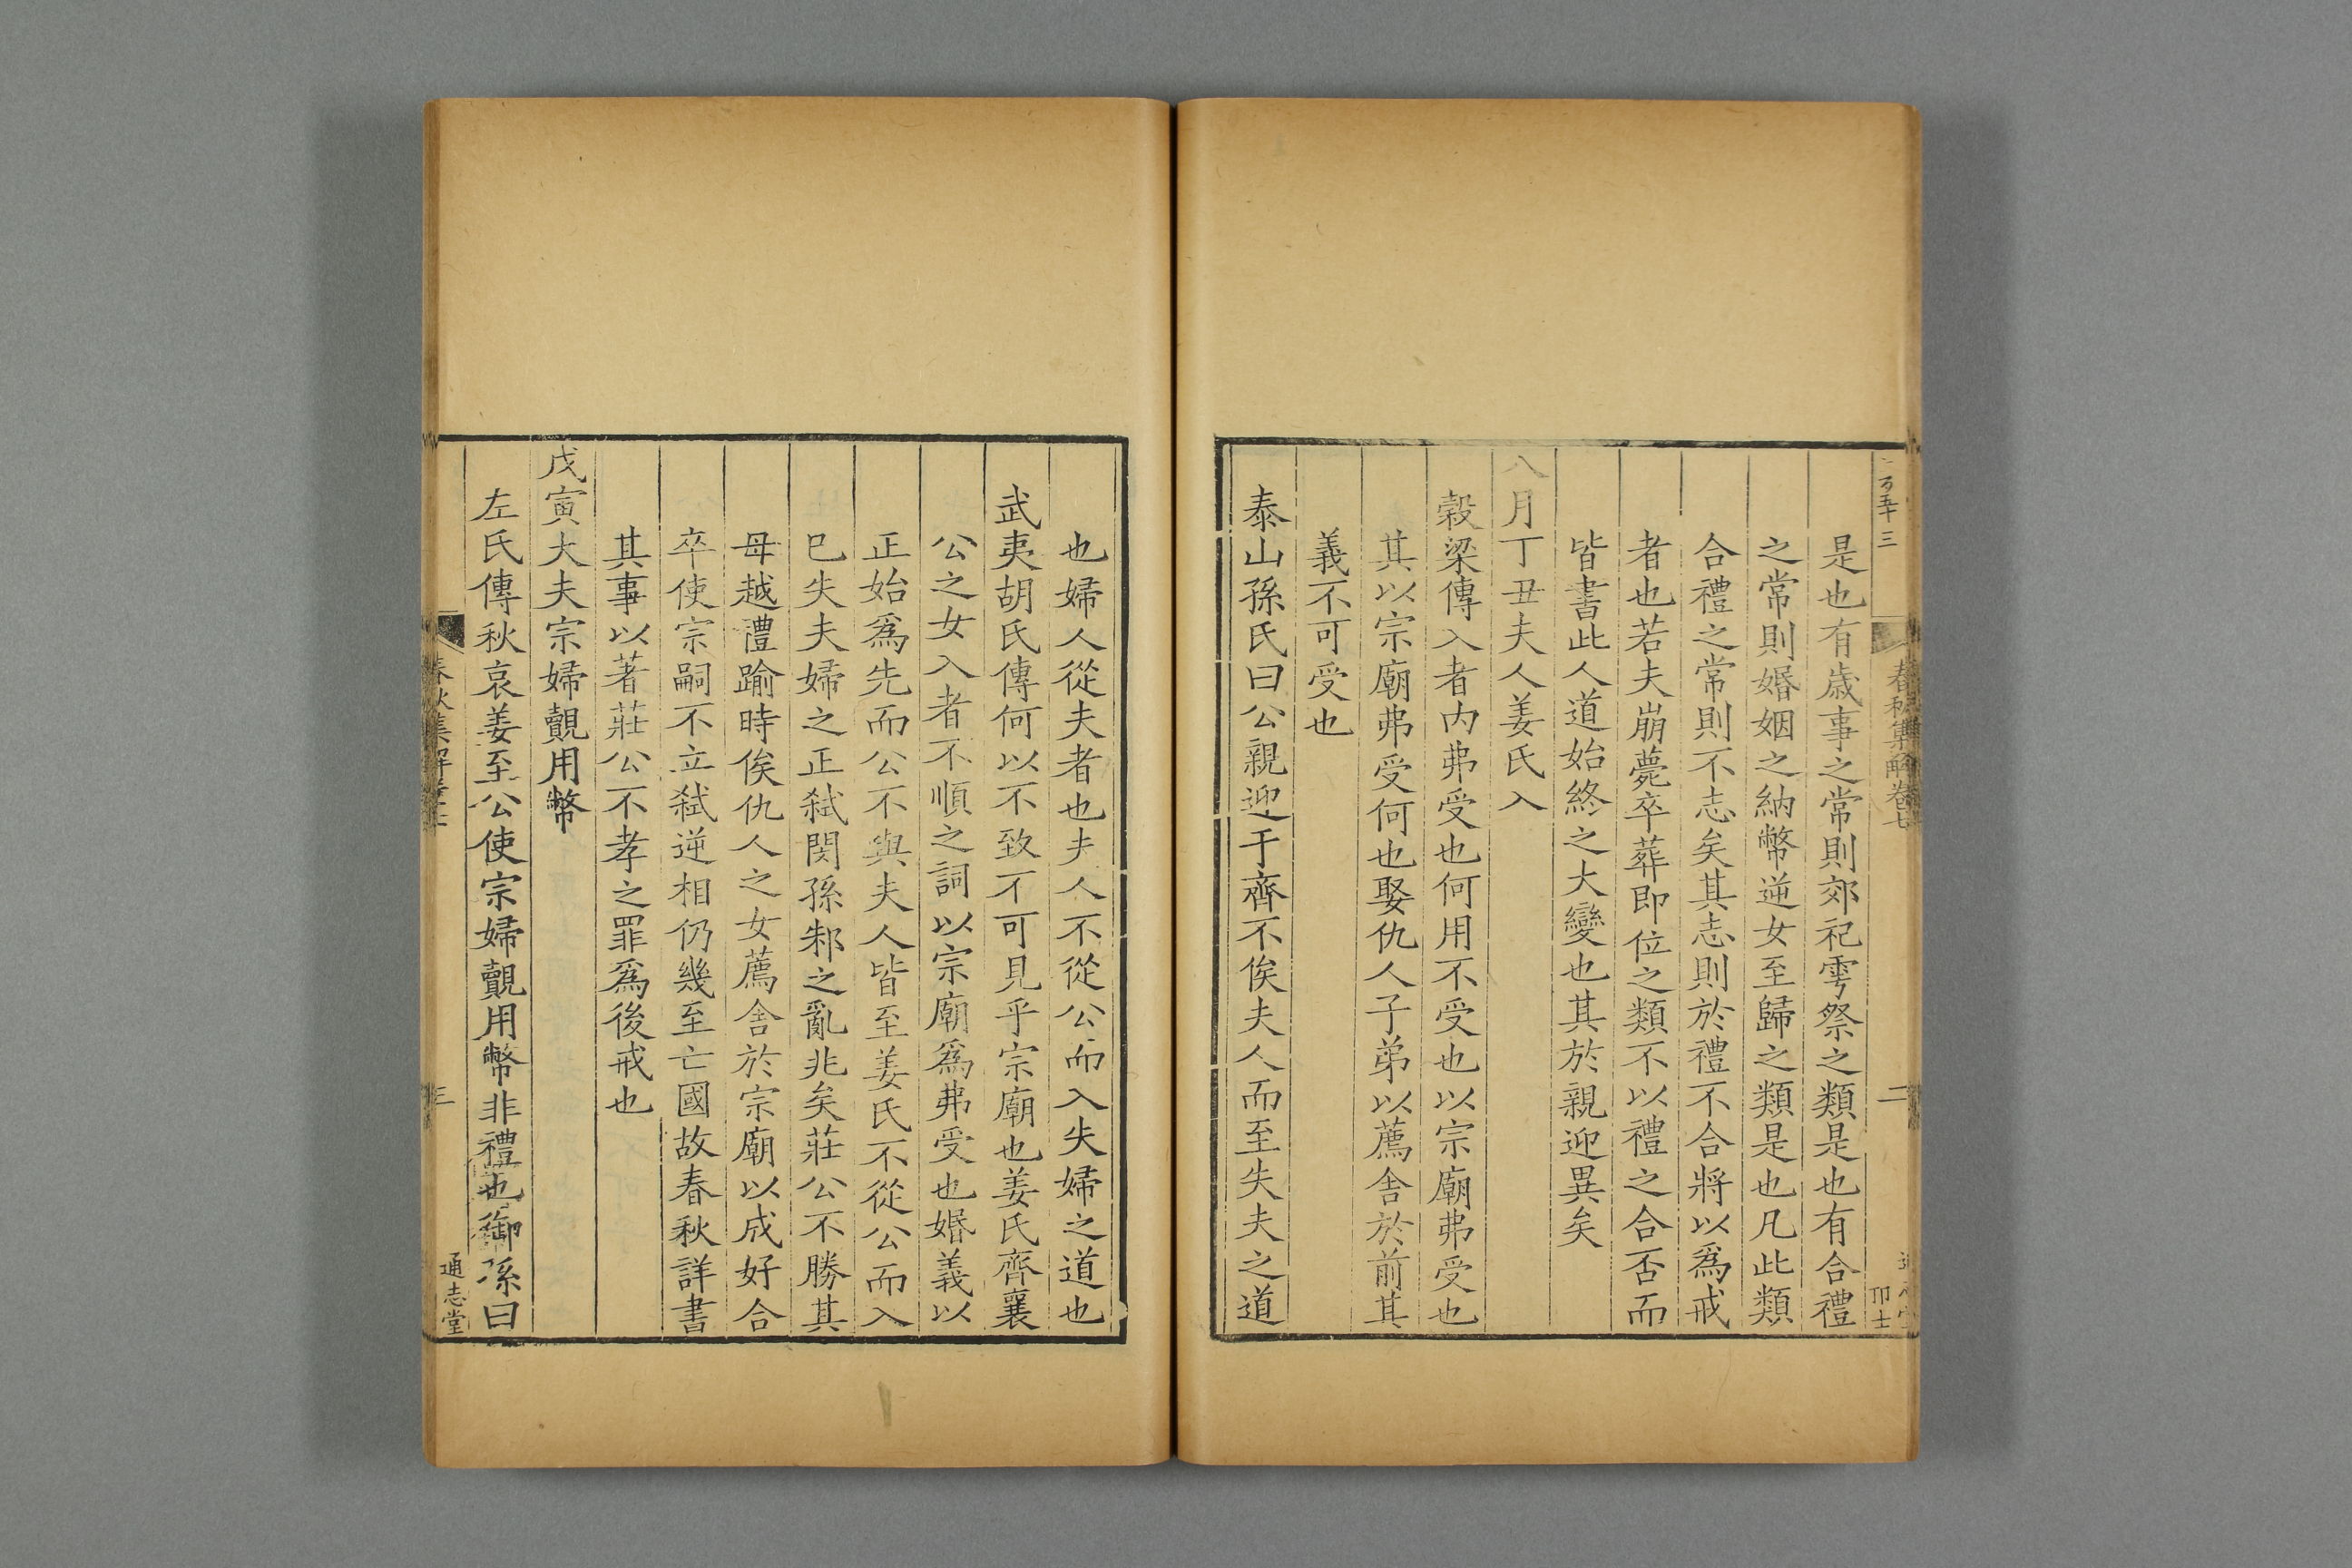 春秋集解卷七
二
是也有歳事之常則郊祀雩祭之類是也有合禮
之常則婚姻之納幣逆女至歸之類是也凡此類
合禮之常則不志矣其志則於禮不合將以爲戒
者也若夫崩薨卒葬即位之類不以禮之合否而
皆書此人道始終之大變也其於親迎異矣
八月丁丑夫人姜氏入
穀梁傳入者内弗受也何用不受也以宗廟弗受也
其以宗廟弗受何也娶仇人子弟以薦舍於前其
義不可受也
泰山孫氏曰公親迎于齊不俟夫人而至失夫之道
也婦人從夫者也夫人不從公而入失婦之道也
武夷胡氏傳何以不致不可見乎宗廟也姜氏齊襄
公之女入者不順之詞以宗廟爲弗受也婚義以
正始爲先而公不與夫人皆至姜氏不從公而入
已失夫婦之正弑閔孫邾之亂兆矣莊公不勝其
母越禮踰時俟仇人之女薦舍於宗廟以成好合
卒使宗嗣不立弑逆相仍幾至亡國故春秋詳書
其事以著莊公不孝之罪爲後戒也
戊寅大夫宗婦覿用幣
左氏傳秋哀姜至公使宗婦覿用幣非禮也御孫曰
春秋集解卷七
三
通志堂